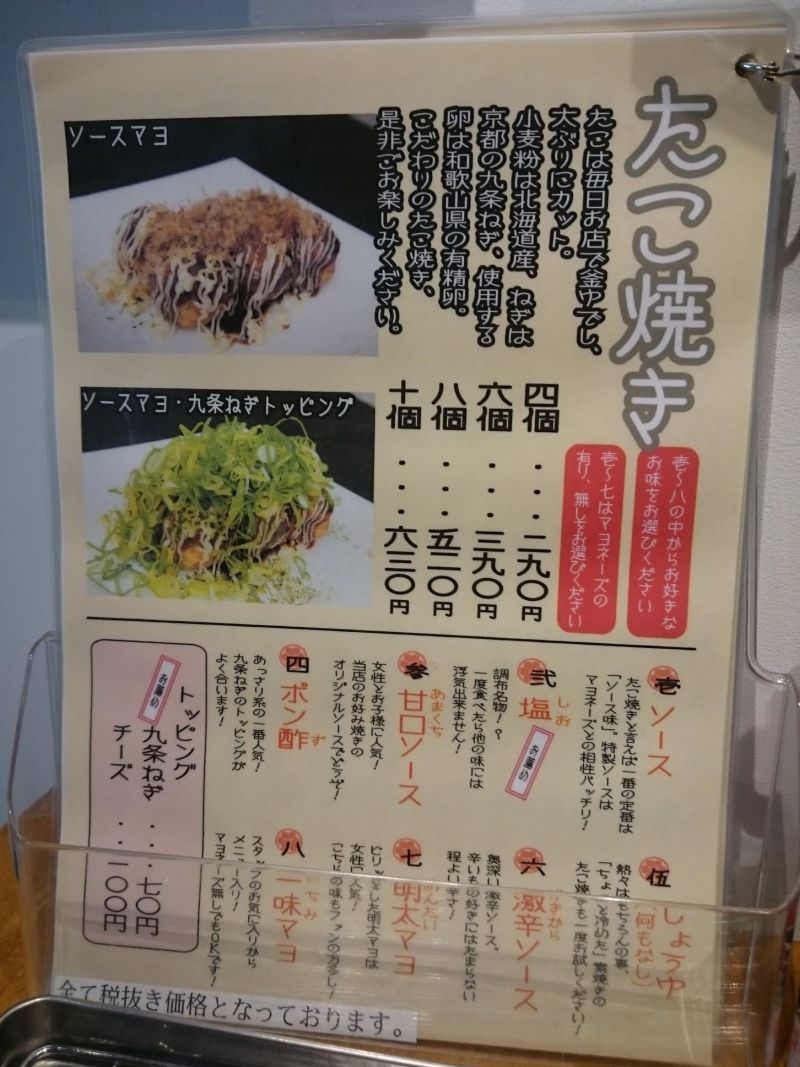 たこ焼き
たこは毎日お店で釜ゆでし、
大ぶりにカット。
小麦粉は北海道産、ねぎは
京都の九条ねぎ、使用する
卵は和歌山県の有精卵。
こだわりのたこ焼き、
是非ご お楽しみください。
ソースマヨ
ソースマヨ・九条ねぎトッピング
壱～八の中からお好きな
お味をお選びください
壱～七はマヨネーズの
有り、無しをお選びください
四個・・・二九〇円
六個・・・三九〇円
八個・・・五二〇円
十個・・・六三〇円
壱 ソース
たこ焼きと言えば一番の定番は
「ソース味」。特製ソースは
マヨネーズとの相性バッチリ!
弐 塩
しお
お薦め
調布名物!?
一度食べたら他の味には
浮気出来ません!
参 甘口ソース
あまくち
女性とお子様に人気!
当店のお好み焼きの
オリジナルソースでどうぞ!
四 ポン酢
ず
あっさり系の一番人気!
九条ねぎのトッピングが
よく合います!
伍 しょうゆ
(何もなし)
熱々はもちろんの事、
「ちょっと冷めた」素焼きの
たこ焼きも一度お試しください!
六 激辛ソース
げきから
奥深い激辛ソース。
辛いもの好きにはたまらない
程よい辛さ!
七 明太マヨ
めんたい
ピリッとした明太マヨは
女性に人気!
こちらの味もファンの方多し!
八 一味マヨ
いちみ
スタッフのお気に入りから
メニュー入り!
マヨネーズ無しでもOKです!
トッピング
お薦め
九条ねぎ・・・七〇円
チーズ・・・一〇〇円
全て税抜き価格となっております。